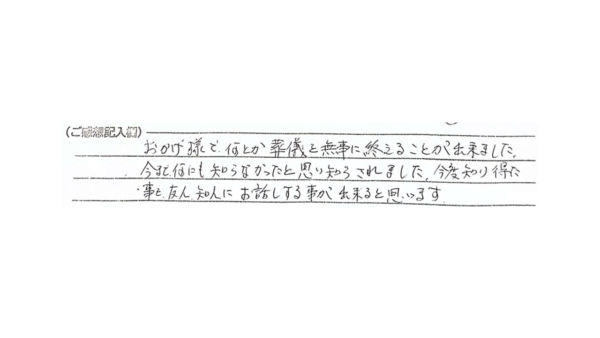 (ご感想記入欄)
おかげ様で、何とか葬儀を無事に終えることが出来ました。
今まで何にも知らなかったと思い知らされました。今度知り得た
事を、友人、知人にお話しする事が出来ると思います